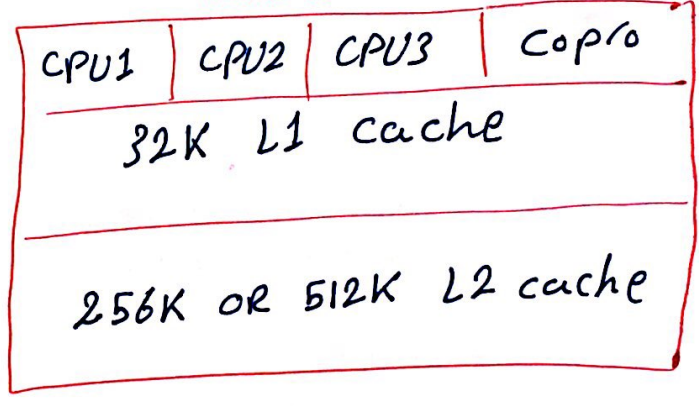 CPU1 CPU2 CPU3 Copro
32K L1 cache
256K OR 512K L2 cache